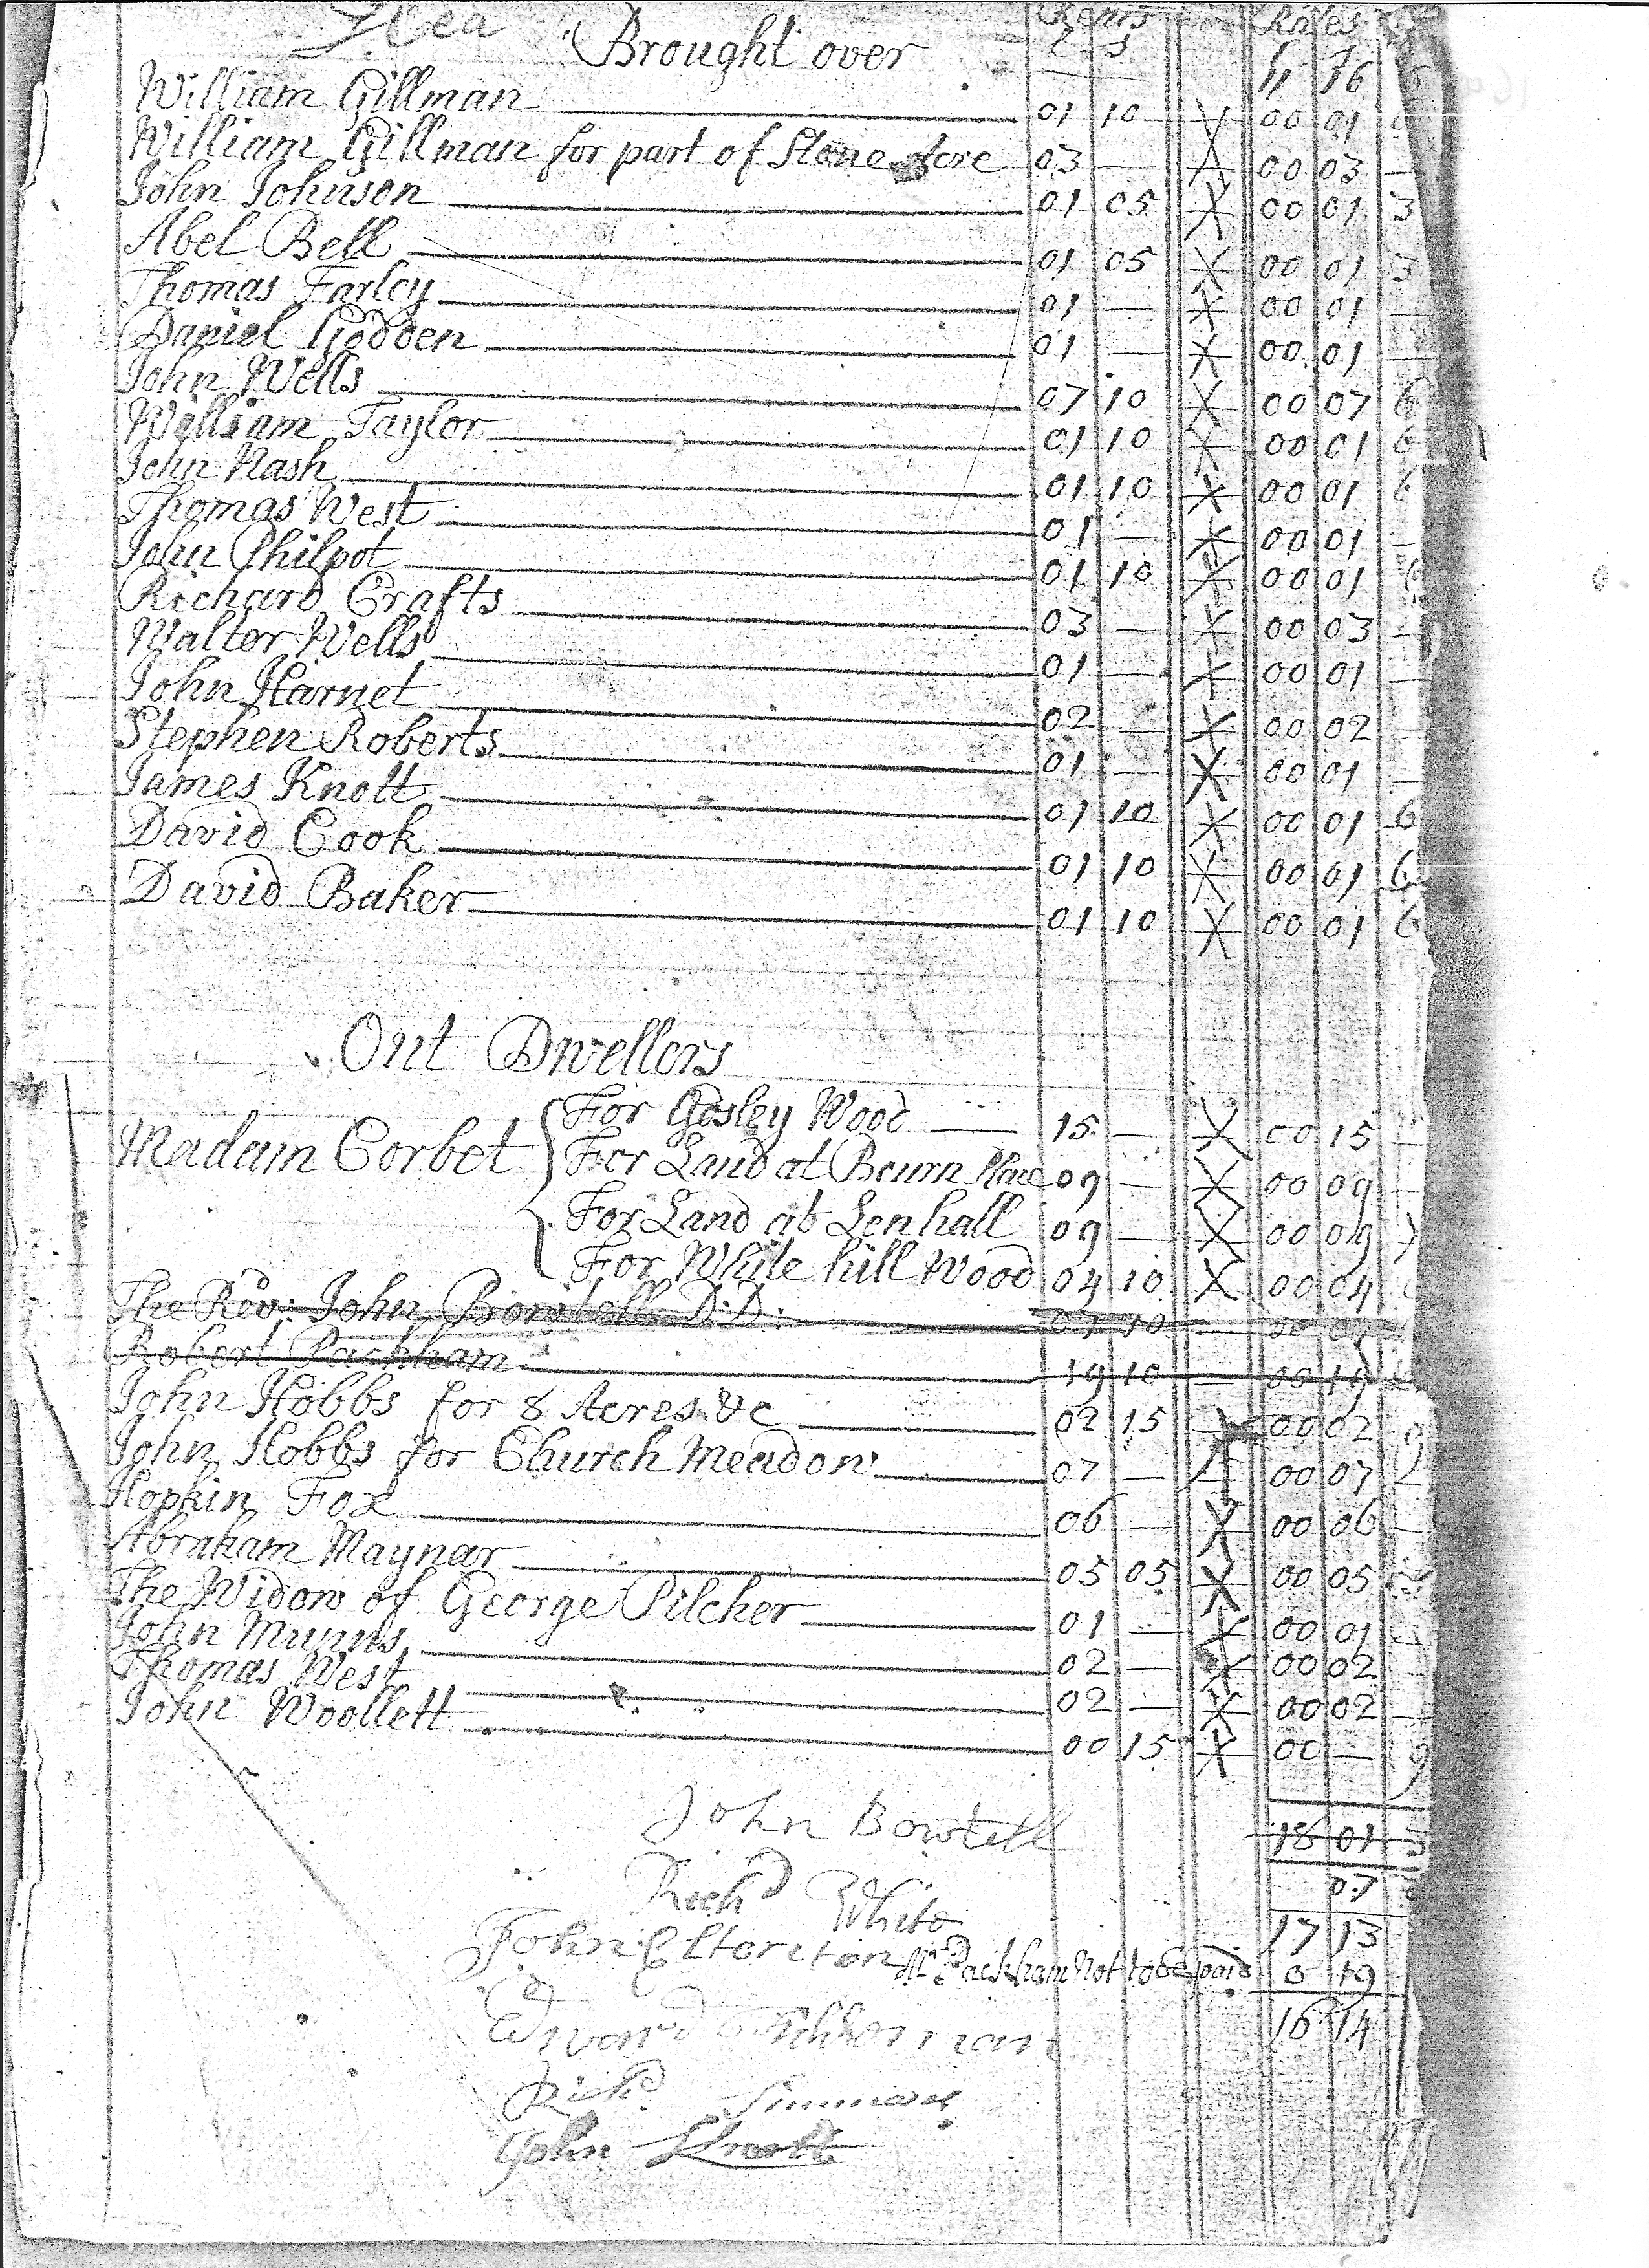 Brought over Rents Rates
£ s £ s
11 16 6
William Gillman 01 10 X 00 01
William Gillman for part of Stone Acre 03 — X 00 03 —
John Johnson 01 05 X 00 01 3
Abel Bell 01 05 X 00 01 3
Thomas Farley 01 — X 00 01 —
Daniel Godden 01 — X 00 01 —
John Wells 07 10 X 00 07 6
William Taylor 01 10 X 00 01 6
John Nash 01 10 X 00 01 6
Thomas West 01 — X 00 01 —
John Philpot 01 10 X 00 01 6
Richard Crafts 03 — X 00 03 —
Walter Wells 01 — X 00 01 —
John Harnet 02 — X 00 02
Stephen Roberts 01 — X 00 01 —
James Knott 01 10 X 00 01 6
David Cook 01 10 X 00 01 6
David Baker 01 10 X 00 01 6
Out Dwellers
Madam Corbet
For Gosley Wood 15 — X 00 15 —
For Land at Bourn Place 09 — X 00 09 —
For Land at Lenhall 09 — X 00 09
For While hill Wood 04 10 X 00 04
The Revd: John Bowtell D:D: 07 10 — 00 07
Robert Packham 19 10 — 00 19
John Hobbs for 8 Acres &c 02 15 X 00 02 9
John Hobbs for Church Meadow 07 — X 00 07 —
Hopkin Fox 06 — X 00 06 —
Abraham Maynar 05 05 X 00 05 3
The Widow of George Pilcher 01 — X 00 01 —
John Munns 02 — X 00 02
Thomas West 02 — X 00 02 —
John Woollett 00 15 X 00 — 9
John Bowtell
18 01 3
Richd White
07
17 13
John
Mr Packham Not to be paid 0 19
Edward
16 14
Richd Simmons
John Knott